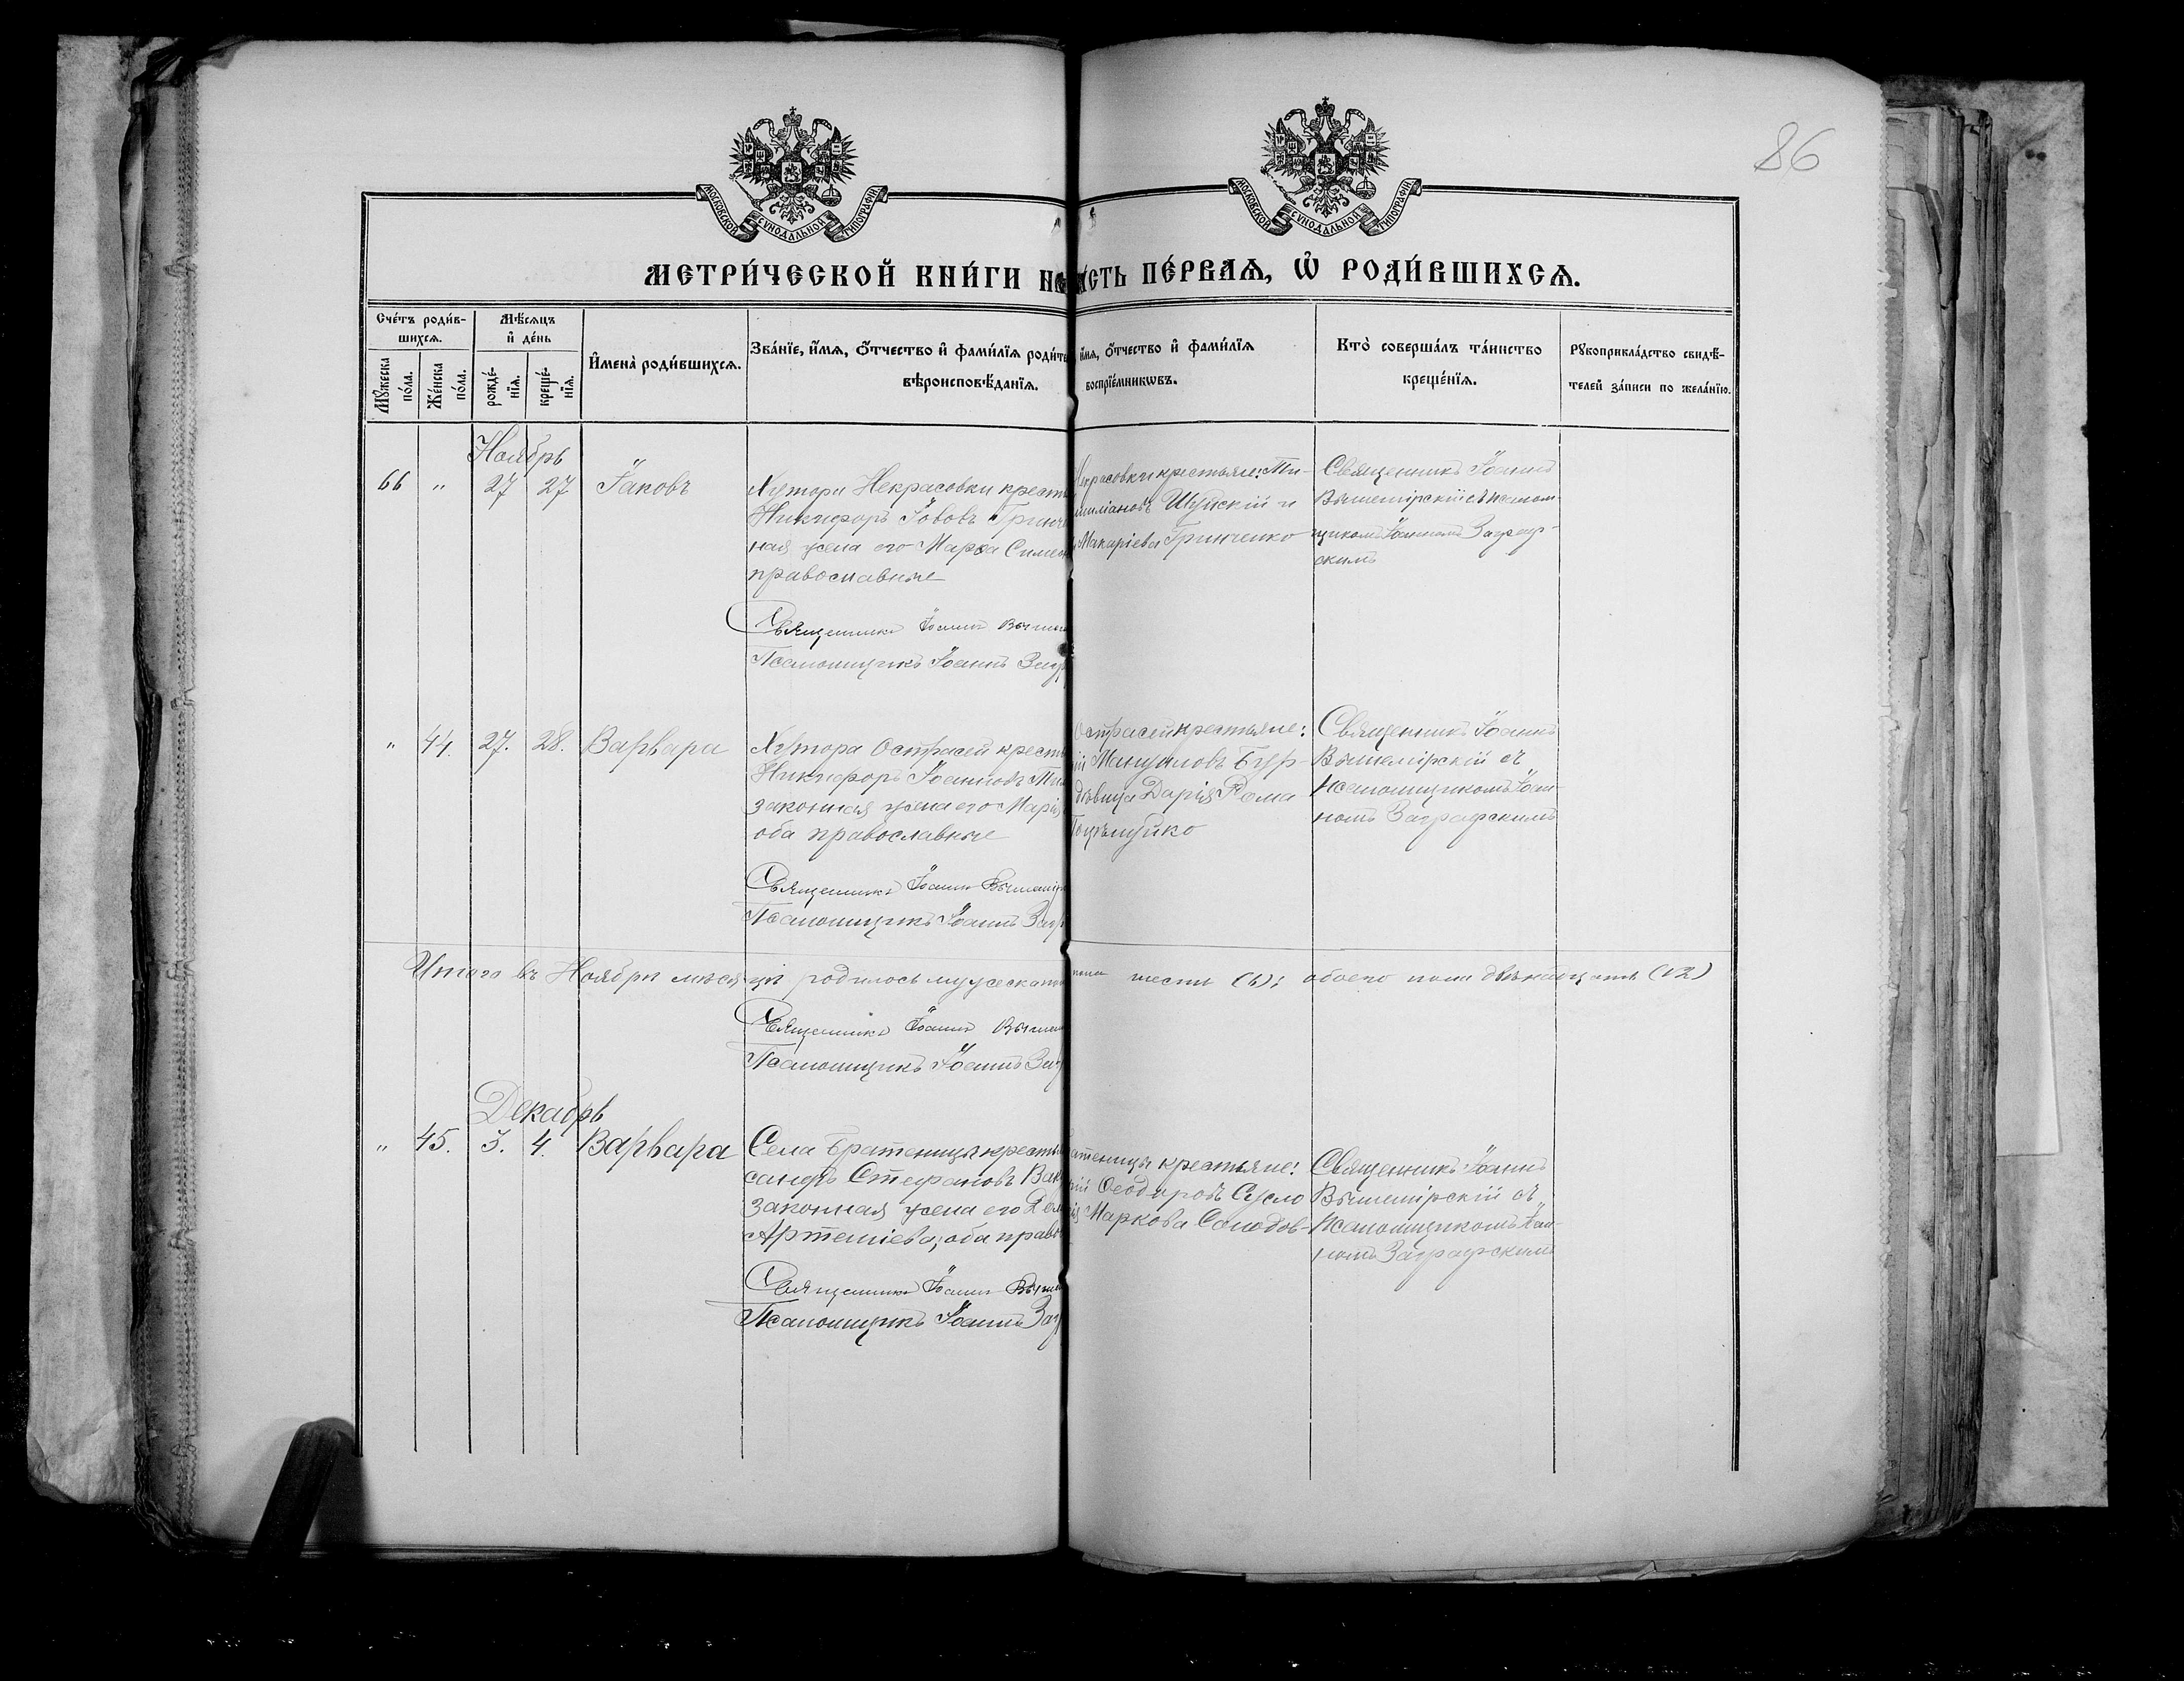 86
МОСКОВСКОЙ СѴНОДАЛЬНОЙ ТИПОГРАФІИ
МОСКОВСКОЙ СѴНОДАЛЬНОЙ ТИПОГРАФІИ
МЕТРИ́ЧЕСКОЙ КНИ́ГИ НА
ЧА́СТЬ ПЕ́РВАѦ, Ѡ҆ РОДИ́ВШИХСѦ.
Сче́тъ роди́в-
шихсѧ.
Мѣ́сѧцъ
и҆ де́нь
Мꙋ́жеска по́ла.
Же́нска по́ла.
рожде́-нїѧ.
креще́-нїѧ.
И҆мена̀ роди́вшихсѧ.
Зва́нїе, и҆́мѧ, ѻ҆́тчество и҆ фамѝлїѧ роди́те
вѣроисповѣ́данїѧ.
и҆́мѧ, ѻ҆́тчество и҆ фамѝлїѧ
воспрїе́мникѡвъ.
Кто̀ соверша́лъ та́инство
креще́нїѧ.
Рꙋкоприкла́дство свидѣ́-
телей за́писи по жела́нїю.
Ноябрь
66 " 27 27 Іаковъ
Хутора Некрасовки кресть
Никифоръ Іововъ Гринч
ная жена его Марѳа Симео
православные
Священникъ Іоаннъ Вышем
Псаломщикъ Іоаннъ Загр
Некрасовки крестьяне: Ти-
Шуйскій и
Макаріева Гринченко
Священникъ Іоаннъ
Вышемірскій съ псалом-
щикомъ Іоанномъ Заграф-
скимъ
" 44. 27. 28. Варвара
Хутора Острасей кресть
Никифоръ Іоанновъ
законная жена его Марія
оба православные
Священникъ Іоаннъ Вышемір
Псаломщикъ Іоаннъ Загр
Острасей крестьяне:
Мануиловъ Бур-
дѣвица Дарія Рома
Священникъ Іоаннъ
Вышемірскій съ
псаломщикомъ Іоан-
номъ Заграфскимъ
Итого въ Ноябрѣ мѣсяцѣ родилось мужеска пола шесть (6); обоего пола двѣнадцать (12)
Священникъ Іоаннъ Вышем
Псаломщикъ Іоаннъ Заг
Декабрь
" 45. 3. 4. Варвара
Села Братеницы кресть
сандръ Стефановъ Вак
законная жена его Дом
Артеміева, оба право
Священникъ Іоаннъ Выш
Псаломщикъ Іоаннъ Заг
атеницы крестьяне:
рій Ѳеодоровъ Сусло
ія Маркова Солодов-
Священникъ Іоаннъ
Вышемірскій съ
Псаломщикомъ Іоан-
номъ Заграфскимъ